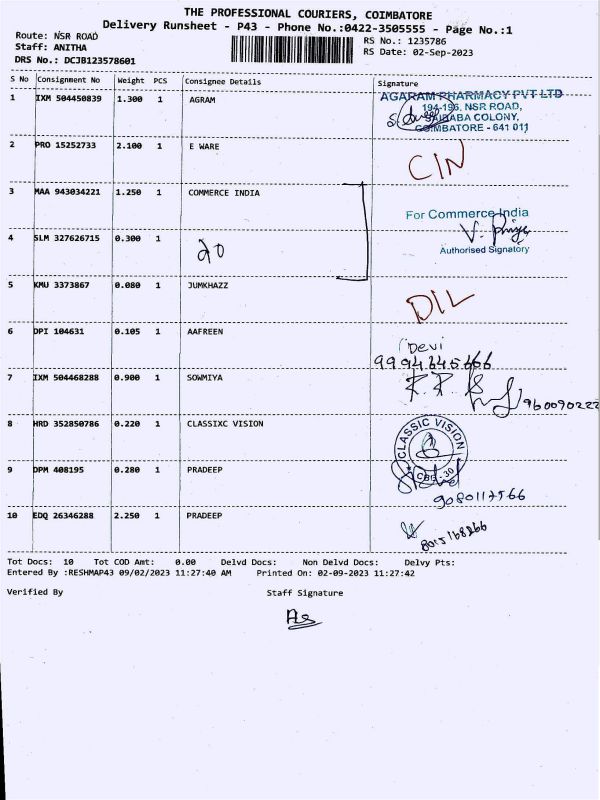 THE PROFESSIONAL COURIERS, COIMBATORE
Delivery Runsheet - P43 - Phone No.:0422-3505555 - Page No.:1
Route: NSR ROAD
RS No.: 1235786
Staff: ANITHA
RS Date: 02-Sep-2023
DRS No.: DCJB123578601
S No Consignment No Weight PCS Consignee Details Signature
1 IXM 504450839 1.300 1 AGRAM
AGARAM PHARMACY PVT LTD
194-196, NSR ROAD,
SAIBABA COLONY,
COIMBATORE - 641 011
2 PRO 15252733 2.100 1 E WARE
CIN
3 MAA 943034221 1.250 1 COMMERCE INDIA
For Commerce India
V. Priya
Authorised Signatory
4 SLM 327626715 0.300 1
5 KMU 3373867 0.080 1 JUMKHAZZ
DIL
6 DPI 104631 0.105 1 AAFREEN
Devi
9994645666
7 IXM 504468288 0.900 1 SOWMIYA
960090222
8 HRD 352850786 0.220 1 CLASSIXC VISION
CLASSIC VISION
CBE - 30
9 DPM 408195 0.280 1 PRADEEP
9080117566
10 EDQ 26346288 2.250 1 PRADEEP
8015168266
Tot Docs: 10 Tot COD Amt: 0.00 Delvd Docs: Non Delvd Docs: Delvy Pts:
Entered By :RESHMAP43 09/02/2023 11:27:40 AM Printed On: 02-09-2023 11:27:42
Verified By Staff Signature